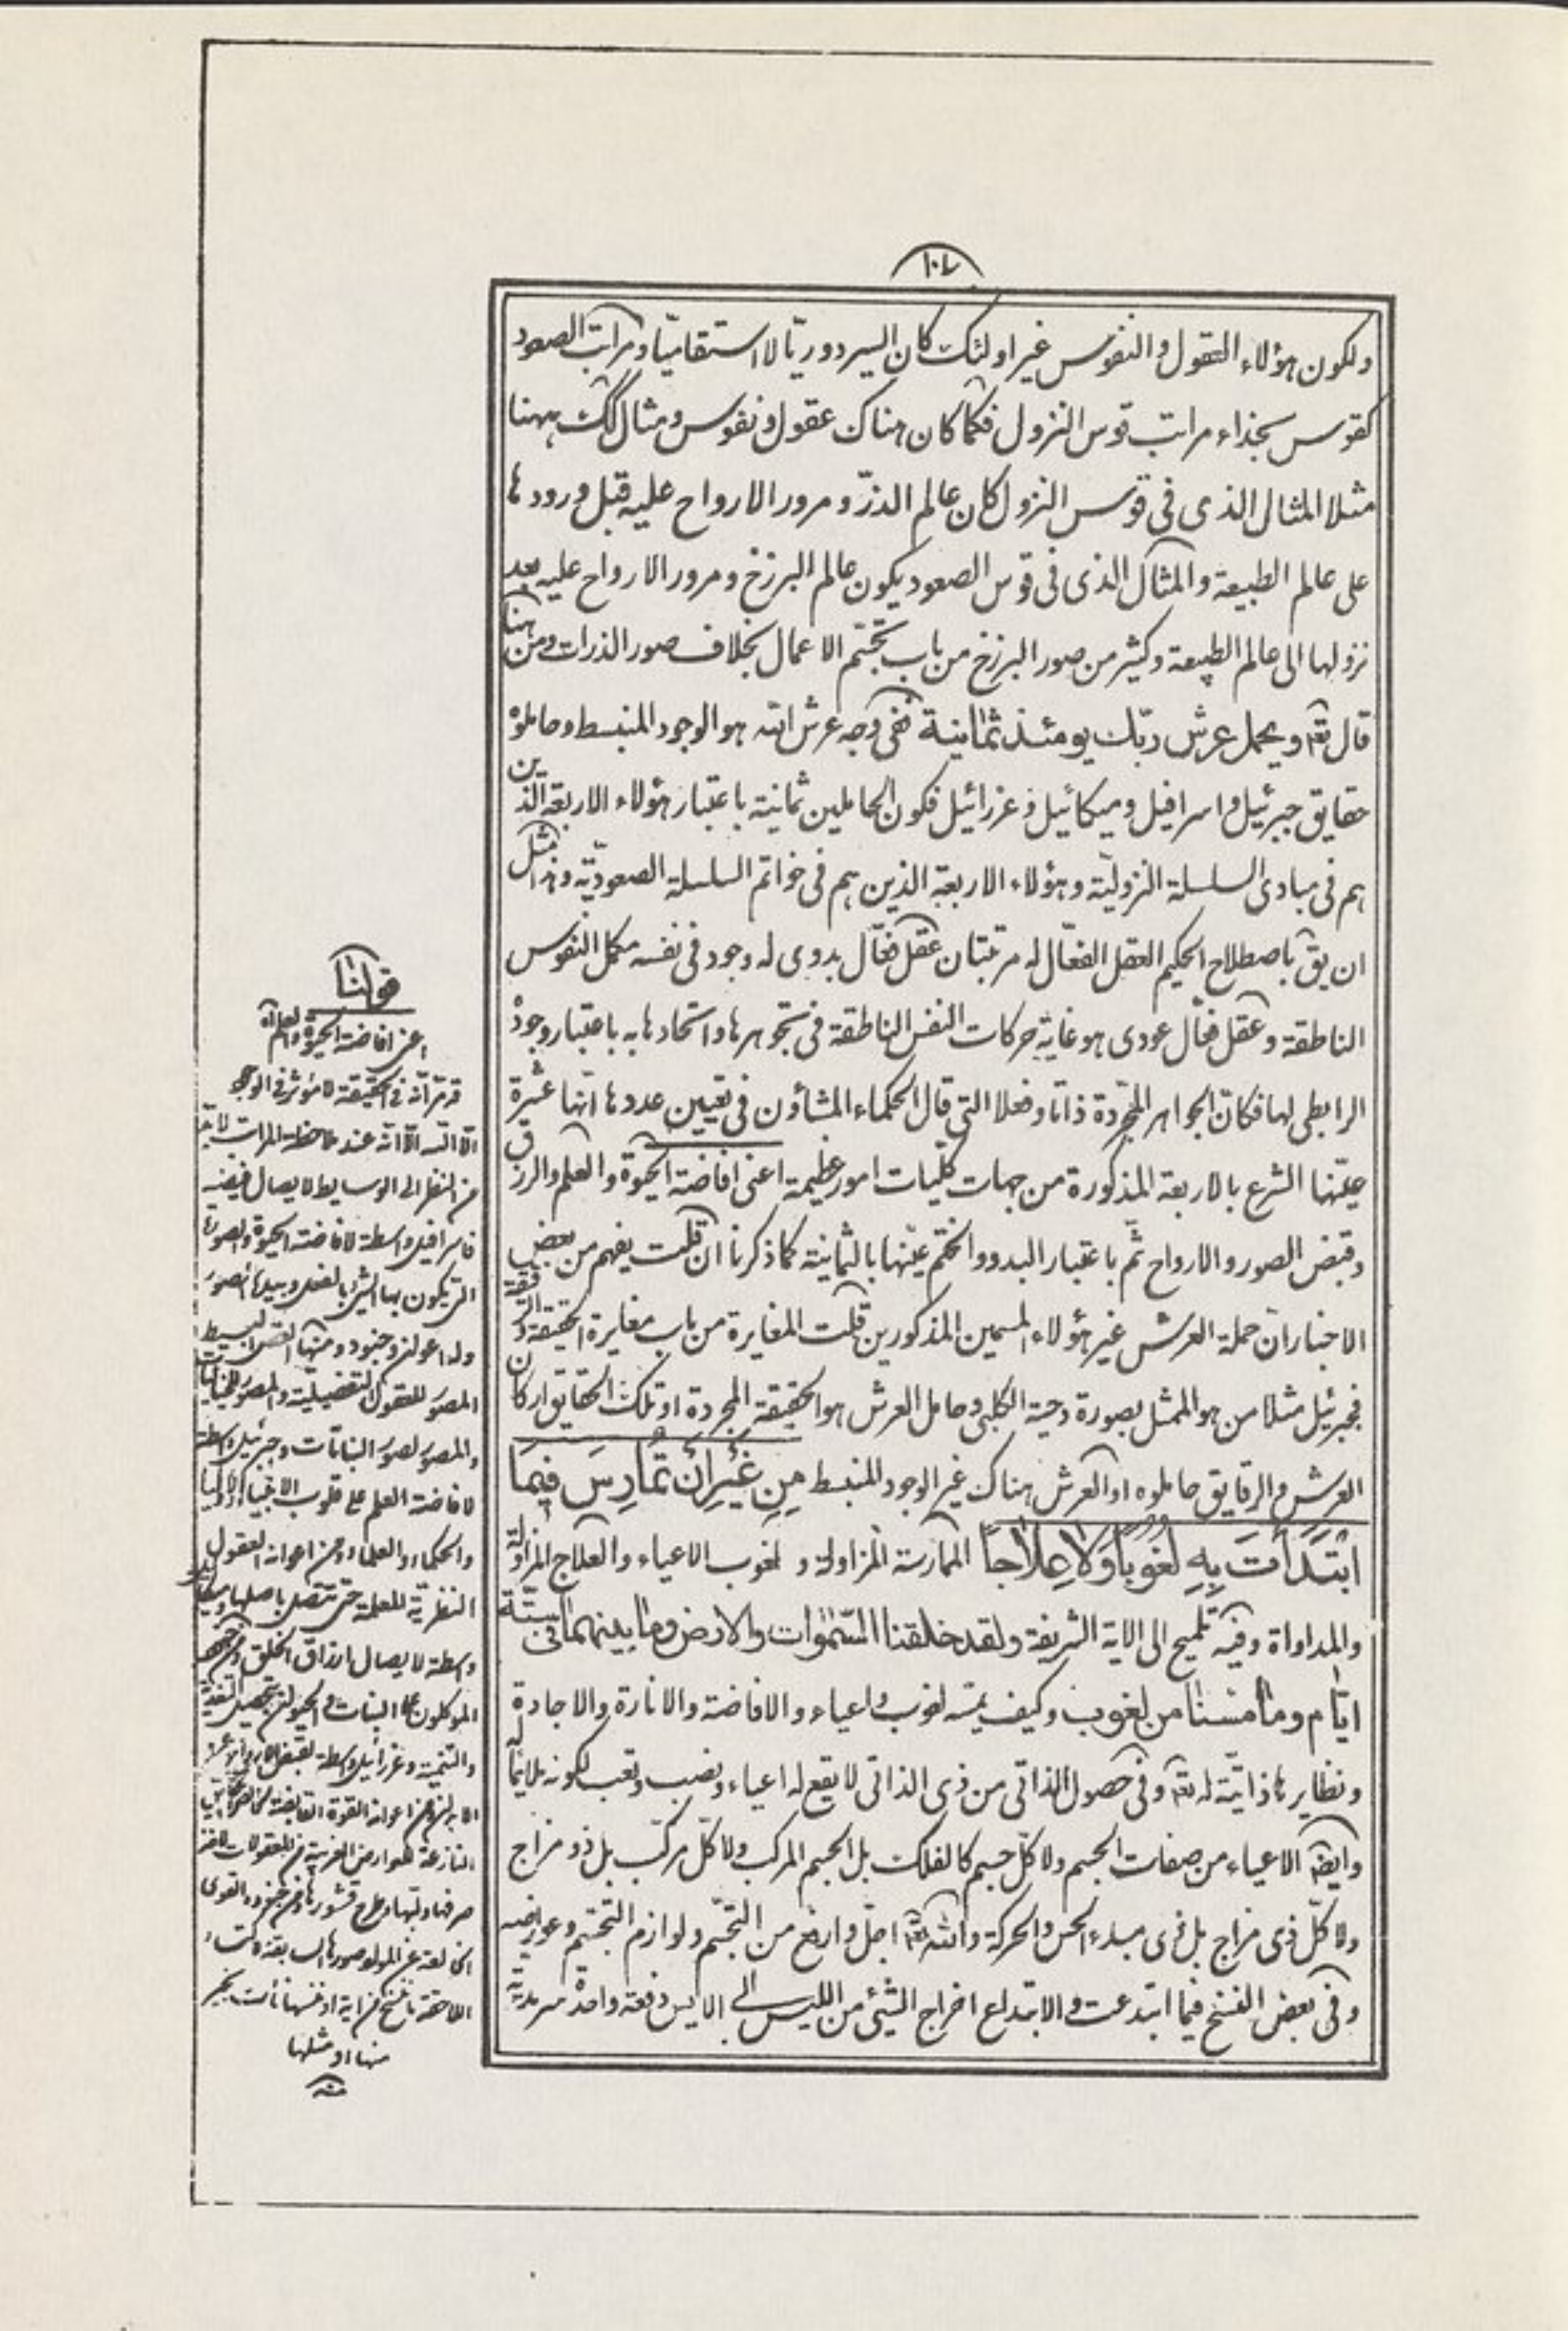 ١٠٧
ولكون هؤلاء العقول والنفوس غير اولئك كان السير دوريّا لا استقاميّا ومراتب الصعود
كقوس بحذاء مراتب قوس النزول فكما كان هناك عقول ونفوس ومثال كك ههنا
مثلا المثال الذى فى قوس النزول كان عالم الذرّ ومرور الارواح عليه قبل ورودها
على عالم الطبيعة والمثال الذى فى قوس الصعود يكون عالم البرزخ ومرور الارواح عليه بعد
نزولها الى عالم الطبيعة وكثير من صور البرزخ من باب تجسّم الاعمال بخلاف صور الذرات ومن هنا
قال تعه ويحمل عرش ربّك يومئذ ثمانية ففى وجه عرش الله هو الوجود المنبسط وحاملوه
حقايق جبرئيل واسرافيل وميكائيل وعزرائيل فكون الحاملين ثمانية باعتبار هؤلاء الاربعة الذين
هم فى مبادى السلسلة النزوليّة وهؤلاء الاربعة الذين هم فى خواتم السلسلة الصعوديّة وهذا مثل
ان يق باصطلاح الحكيم العقل الفعّال له مرتبتان عقل فعّال بدوى له وجود فى نفسه مكمل النفوس
الناطقة وعقل فعّال عودى هو غاية حركات النفس الناطقة فى تجوهرها واتحادها به باعتبار وجوده
الرابطى لها فكانّ الجواهر المجرّدة ذاتا وفعلا التى قال الحكماء المشاؤن فى تعيين عددها انّها عشرة
عيّنها الشرع بالاربعة المذكورة من جهات كلّيات امور عظيمة اعنى افاضة الحيوة والعلم والرزق
وقبض الصور والارواح ثمّ باعتبار البدو والختم عيّنها بالثمانية كما ذكرنا ان قلت يفهم من بعض
الاخبار ان حملة العرش غير هؤلاء المسمين المذكورين قلت المغايرة من باب مغايرة الحقيقة والرقيقة
فجبرئيل مثلا من هو الممثل بصورة دحية الكلبى وحامل العرش هو الحقيقة المجردة او تلك الحقايق اركان
العرش والرقايق حاملوه او العرش هناك غير الوجود المنبسط مِن غَيْرِ اَنْ تُمارِسَ فيمَا
ابْتَدَأْتَ بِهِ لُغُوباً وَلا عِلاجاً الممارسة المزاولة و لغوب الاعياء والعلاج المزاولة
والمداواة وفيه تلميح الى الاية الشريفة ولقد خلقنا السّموات والارض وما بينهما فى ستّة
ايّام وما مسّنا من لغوب وكيف يمسّه لغوب واعياء والافاضة والانارة والاجادة
ونظايرها ذاتيّة له تعه وفى حصول الذاتى من ذى الذاتى لا يقع له اعياء ونصب وتعب لكونه ملايما له
وايضا الاعياء من صفات الجسم ولا كلّ جسم كالفلك بل الجسم المركب ولا كلّ مركّب بل ذو مزاج
ولا كلّ ذى مزاج بل ذى مبدء الحس والحركة والله تعه اجلّ وارفع من التجسّم ولوازم التجسّم وعوارضه
وفى بعض النسخ فيما ابتدعت والابتداع اخراج الشيئ من الليس الى الايس دفعة واحدة سرمديّة
قولنا
اعنى افاضة الحيوة والعلم
قد مرّ انّه فى الحقيقة لا مؤثر فى الوجود
الّا الله الّا انّه عند ملاحظة المراتب لا بدّ
من النظر الى الوسايط لايصال فيضه
فاسرافيل واسطة لافاضة الحيوة والصورة
التى يكون بها الشئ بالفعل وبيده الصور
وله اعوان وجنود ومنها
المصوّر للعقول التفصيليّة والمصوّر للخياليات
والمصوّر لصور النباتات وجبرئيل واسطة
لافاضة العلم على قلوب الانبياء والاولياء
والحكماء والعلماء ومن اعوانه العقول
النظريّة المعلمة حتى تتصل باصلها وميكائيل
واسطة لايصال ارزاق الخلق
الموكلون على النبات والحيوان بتحصيل التغذية
والتنمية وعزرائيل واسطة لقبض الارواح عن
الابدان ومن اعوانه القوة
النازعة للعوارض الغريبة من المعقولات
قشورها ومن جنوده القوى
الخالعة عن المواد صورها السابقة
اللاحقة ما ننسخ من اية او ننسها نأت بخير
منها او مثلها
منه